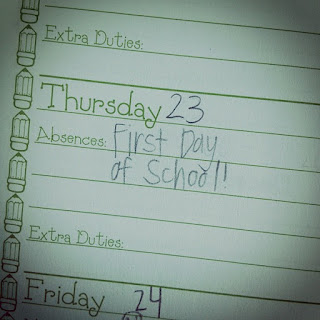 Extra Duties:
Thursday 23
Absences: First Day
of School!
Extra Duties:
Friday 24